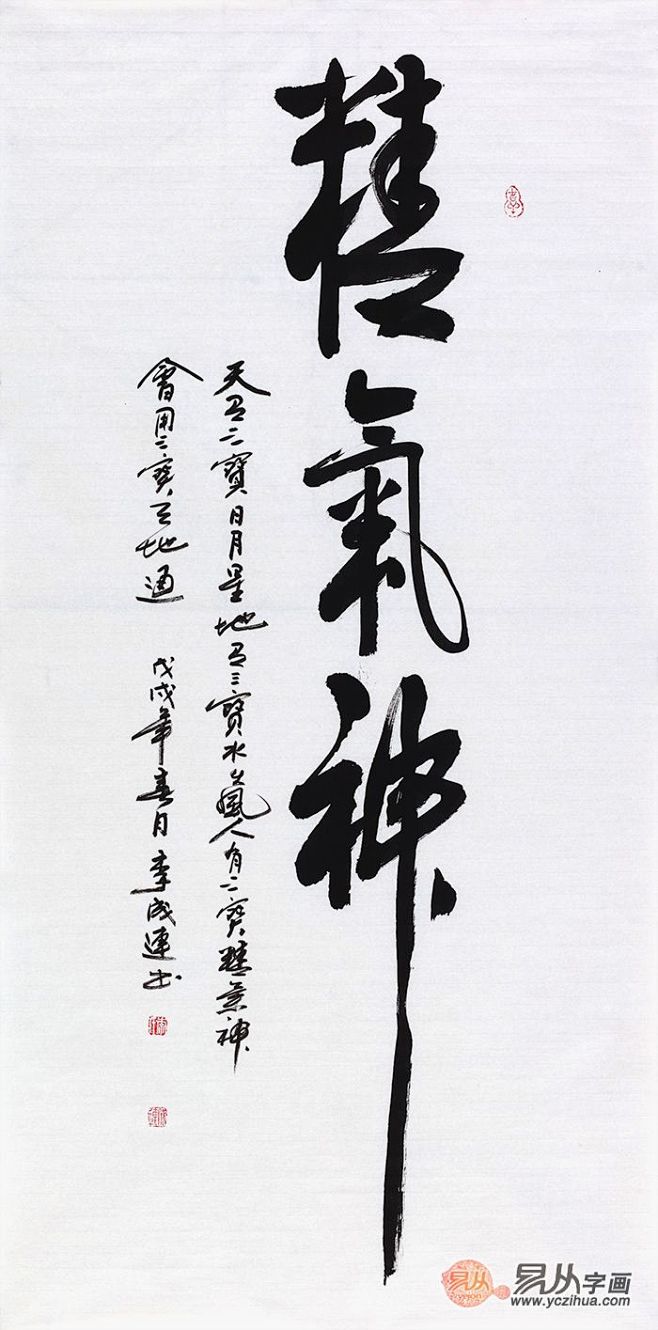 精氣神
天有三寶日月星地有三寶水火風人有三寶精氣神
會用三寶天地通
戊戌年春月李成連書
易从
yycon
易从字画
www.yczihua.com